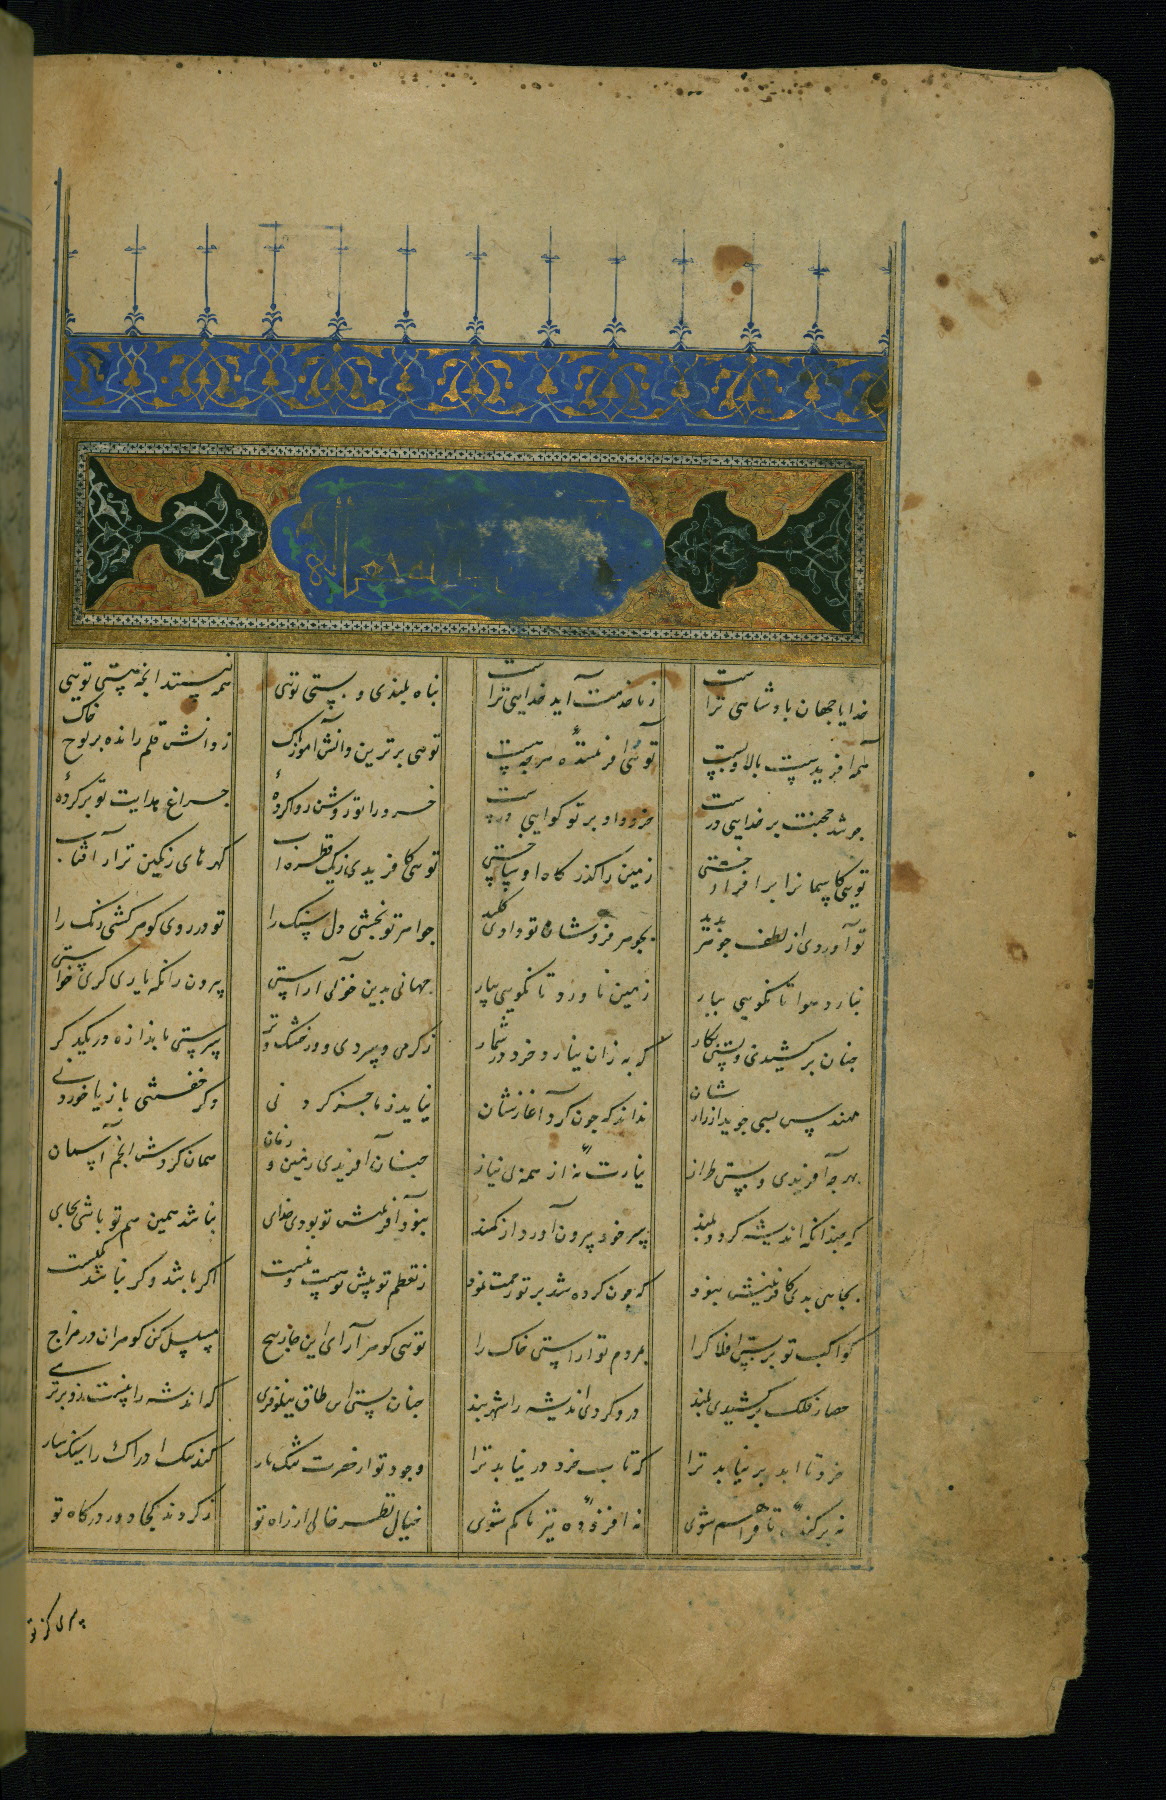 خدایا جهان پادشاهی تراست ز ما خدمت آید خدایی تراست پناه بلندی و پستی توئی همه نیستند انچه هستی تویی
همه افریدست بالا و پست توئی افرینندهٔ هرچه هست توئی برترین دانش آموز پاک ز دانش قلم رانده بر لوح خاک
چو شد حجتت بر خدایی درست خرد داد بر تو کوایی درست خرد را تو روشن روا کردهٔ چراغ هدایت تو بر کردهٔ
تویی کاسمانرا برافراختی زمین را کذرکاه او ساختی توئی کافریدی ز یک قطره اب کهرهای رنکین تر از آفتاب
تو آوردی از لطف جوهر پدید بجوهر فروشان تو دادی کلید جواهر تو بخشی دل سنک را تو در روی کوهر کشی رنک را
نبارد هوا تا نکویی ببار زمین ناورد تا نکویی بیار جهانی بدین خوبی اراستی برون زانکه یاری کری خواستی
چنان برکشیدی و بستی نکار که به زان نیارد خرد در شمار ز کرمی و سردی و از خشک و تر سرشتی باندازه در یکدکر
مهندس بسی جوید از رازشان نداند که چون کرد آغازشان نیاید ز ما جز کردنی و کر خفتنی باز یا خوردنی
بهرچه آفریدی و بستی طراز نیازت نهٔ از همه بی نیاز چنان آفریدی زمین و زمان همان کردش انجم آسمان
که چندانکه اندیشه کردد بلند سر خود برون آورد از کمند نبود آفرینش تو بودی خدای نباشد همین هم تو باشی بجای
بجایی بدی کافرینش نبود که چون کرده شد بر تو زحمت نفزود ز تعظیم تو پیش تو هست و نیست اکر باشد و کر نباشد یکیست
کواکب تو بربستی افلاک را بمردم تو اراستی خاک را توئی کوهر آرای این مسلسل کن کوهران در مزاج
حصار فلک برکشیدی بلند درو کردی اندیشه را شهربند چنان بستی این طاق نیلوفری که اندیشه را نیست زو برتری
خرد تا ابد برنیابد ترا که تاب خرد در نیابد ترا وجود تو از حضرت تنک بار کند پیک ادراک را سنکسار
نه پرکندهٔ تا فراهم شوی نه افزودهٔ نیز تا کم شوی خیال نظر خالی از راه تو دور درکاه تو
سری کز تو